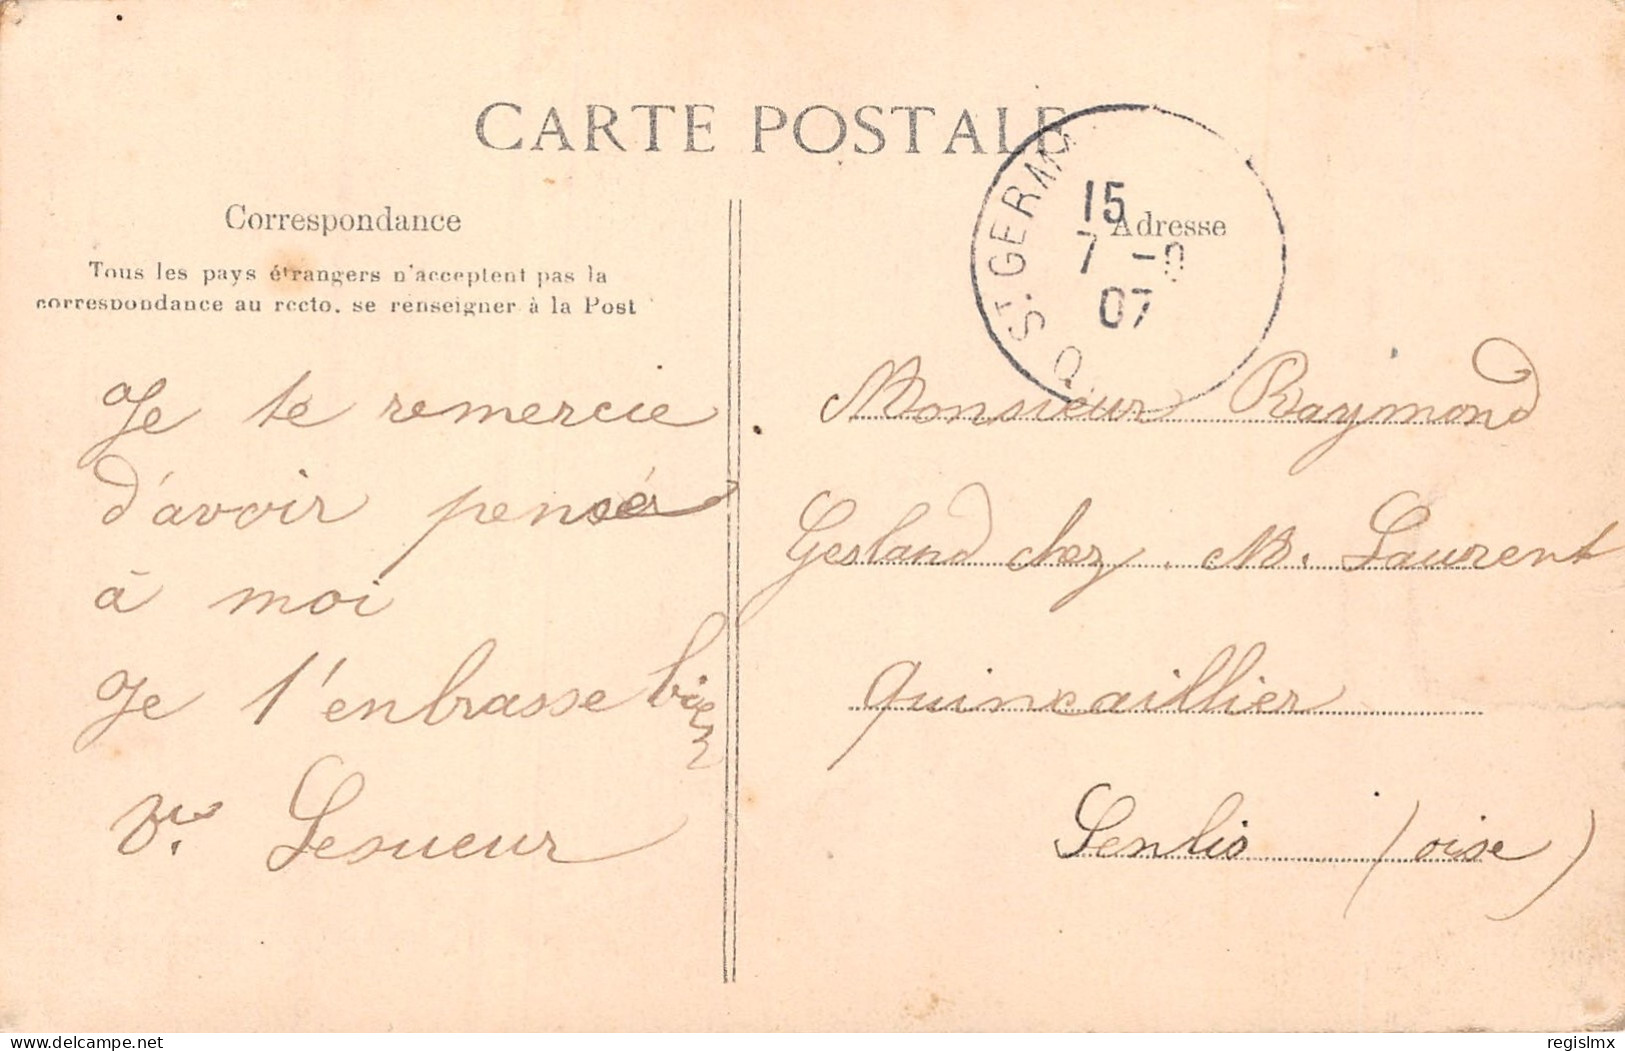 CARTE POSTALE
Correspondance
Tous les pays étrangers n'acceptent pas la
correspondance au recto, se renseigner à la Post
Je te remercie
d'avoir pensé
à moi
Je t'enbrasse bien
Vve Lesueur
ST. GERMA
15
7 -9
07
Adresse
Monsieur Raymond
Gesland chez. M. Laurent
quincaillier
Senlis (oise)
delcampe.net
regislmx